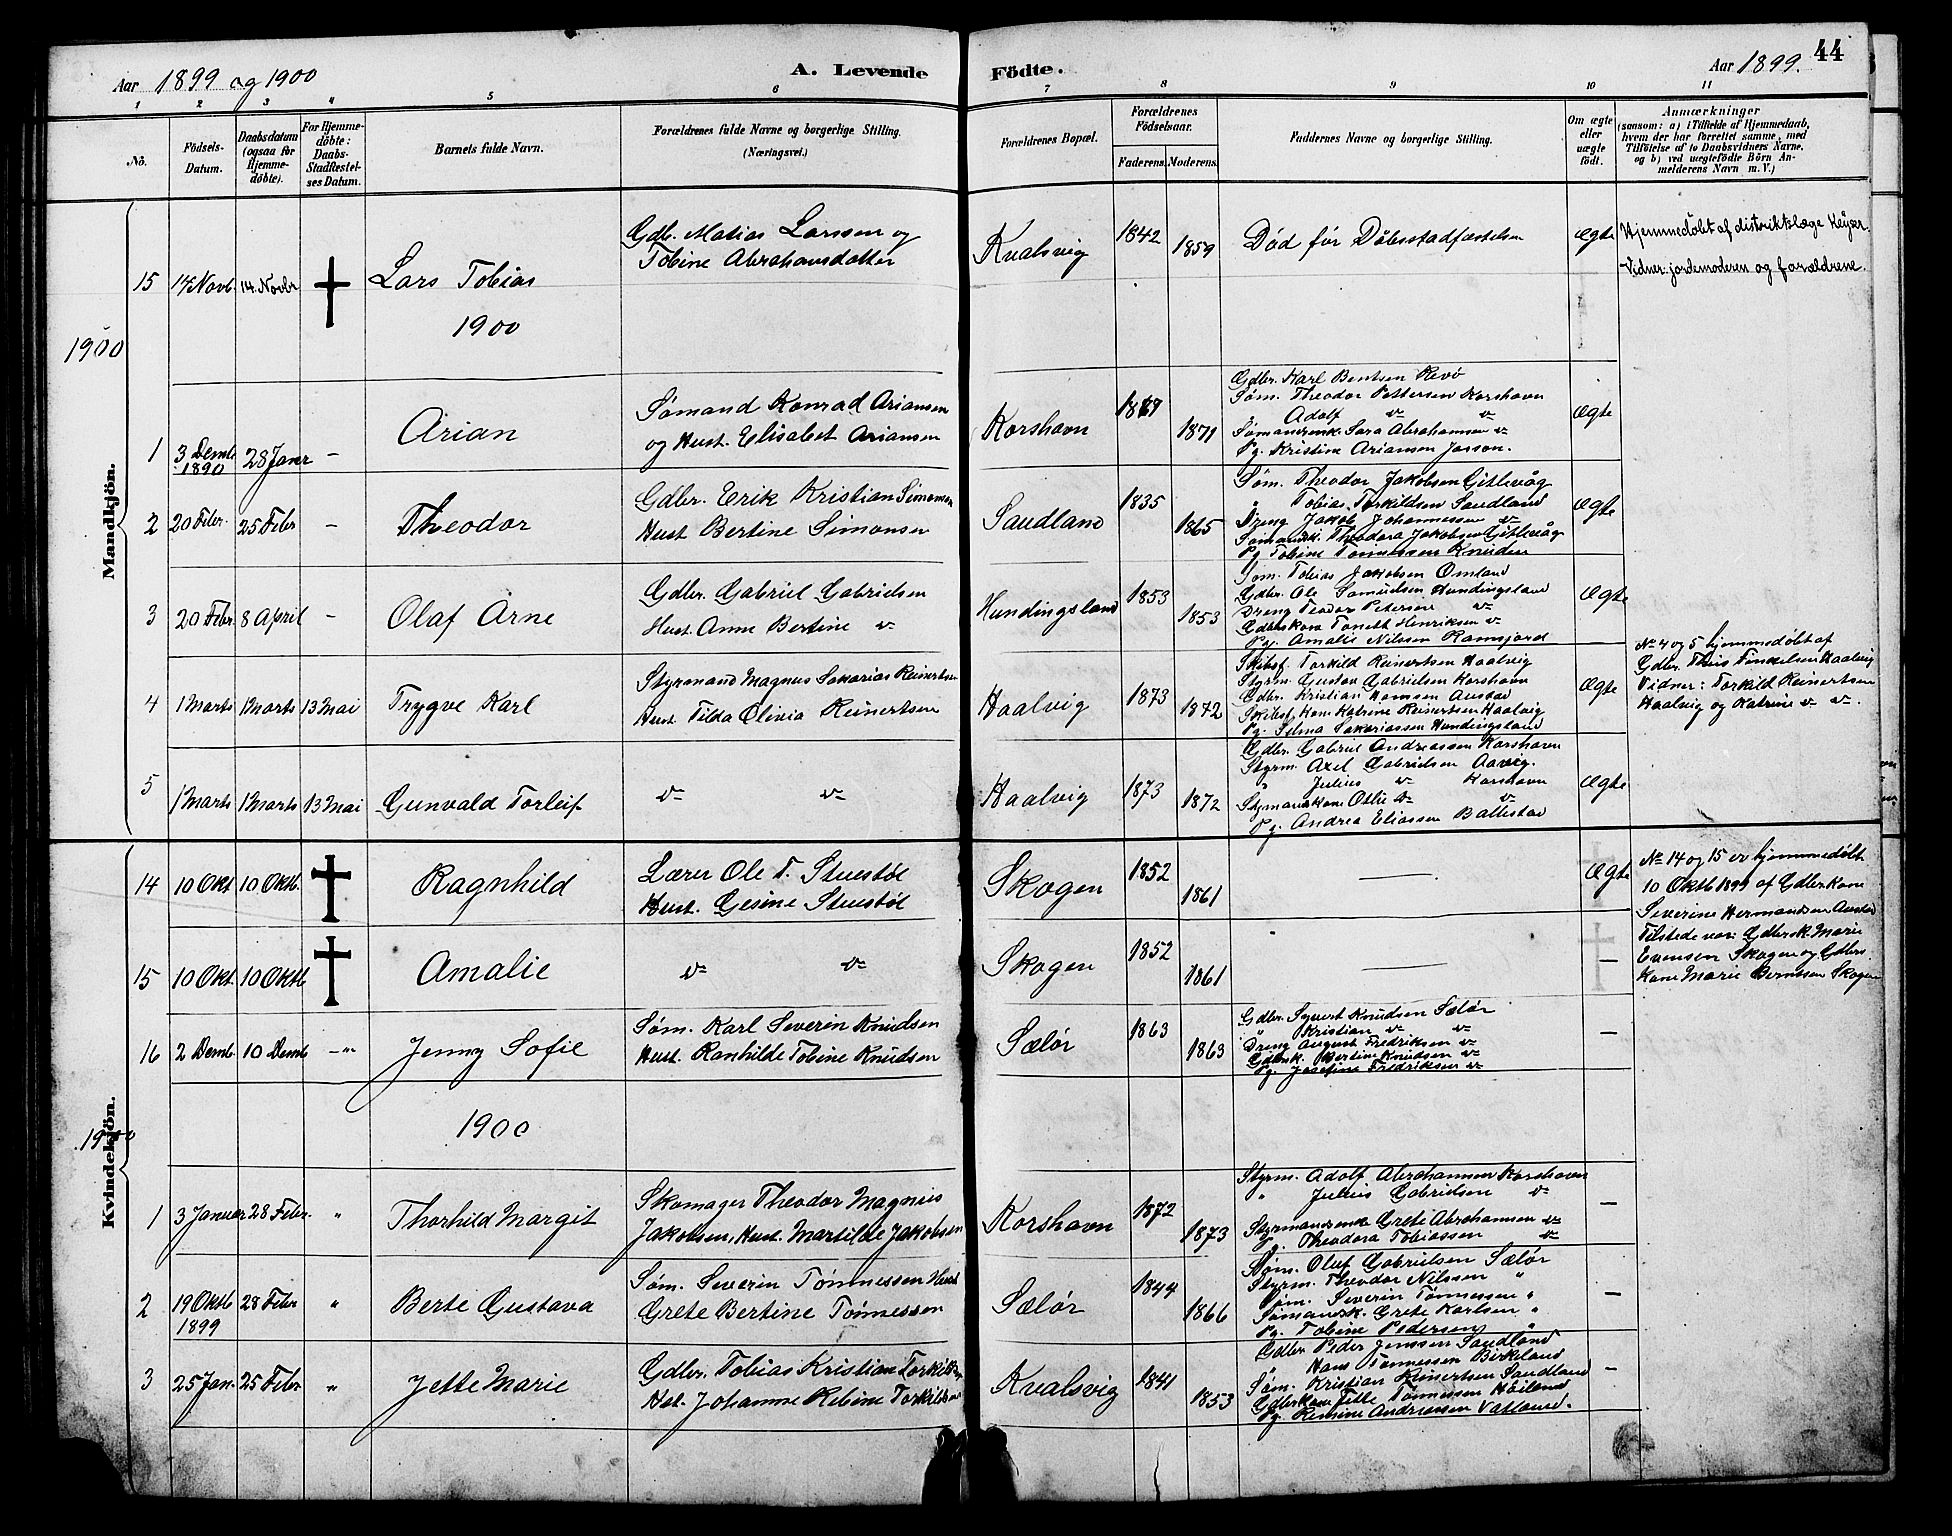 Aar 1899 og 1900
A. Levende
Födte.
Aar 1899.
44
1 2 3 4 5 6 7 8 9 10 11
Nö.
Födsels-
Datum.
Daabsdatum
(ogsaa for
Hjemme-
döbte).
For Hjemme-
döbte:
Daabs-
Stadfæstel-
ses Datum.
Barnets fulde Navn.
Forældrenes fulde Navne og borgerlige Stilling.
(Næringsvei.)
Forældrenes Bopæl.
Forældrenes
Födselsaar.
Faderens. Moderens.
Faddernes Navne og borgerlige Stilling.
Om ægte
eller
uægte
födt.
Anmærkninger
(saasom: a) i Tilfælde af Hjemmedaab,
hvem der har forrettet samme, med
Tilföielse af to Daabsvidners Navne,
og b) ved uægtefödte Börn An-
melderens Navn m. V.)
Mandkjön.
15 14 Novb. 14 Novbr † Lars Tobias
Gdbr. Matias Larssen og
Tobine Abrahamsdatter
Kvalsvig 1842 1859
Död før Dåbsstadfæstelsen
Ægte
Hjemmedøbt af distriktslæge Keyser.
Vidner: jordemoderen og forældrene.
1900
1900
1 3 Demb. 1890 28 Janr – Arian
Sømand Konrad Ariansen
og Hust. Elisabet Ariansen
Korshavn 1869 1871
Gdbr. Karl Bentsen Revø
Søm. Theodor Pettersen Korshavn
Adolf v– v–
Sømandsenk. Sara Abrahamsen v–
Pg. Kristine Ariansen Jaasun.
Ægte
2 20 Febr. 25 Febr – Theodor
Gdbr. Erik Kristian Simonsen
Hust Bertine Simonsen
Saudland 1835 1865
Søm. Theodor Jakobsen Gitlevåg
" Tobias Torkildsen Saudland
Dreng Jakob Johannessen v–
Sømandsk. Theodora Jakobsen Gitlevåg
Pg Tobine Tønnessen Knuden
Ægte
3 20 Febr. 8 April – Olaf Arne
Gdbr. Gabriel Gabrielsen
Hust. Anne Bertine v–
Hundingsland 1853 1853
Søm. Tobias Jakobsen Omland
Gdbr. Ole Samuelsen Hundingsland
Dreng Teodor Petersen v–
Gdbrskone Tonett Henriksen v–
Pg. Amalie Nilssen Ramsjord
Ægte
4 1 Marts 1 Marts 13 Mai Trygve Karl
Styrmand Magnus Sakarias Reinertsen
Hust Tilda Olivia Reinertsen
Haalvig 1873 1872
Skibsf. Torkild Reinertsen Haalvig
Styrm. Gustav Gabrielsen Korshavn
Gdbr. Kristian Hansen Austad
Skibsf. Kone Katrine Reinertsen Haalvig
Pg. Selma Sakariassen Hundingsland
Ægte
No 4 og 5 hjemmedøbt af
Gdbr. Theis Tinkelsen Haalvig
Vidner: Torkild Reinertsen
Haalvig og Katrine v– v–.
5 1 Marts 1 Marts 13 Mai Gunvald Torleif
v– v–
Haalvig 1873 1872
Gdbr. Gabriel Andreassen Korshavn
Styrm. Axel Gabrielsen Aavig.
" Julius v– Korshavn
Styrmandskone Otilie v– v–
Pg. Andrea Eliassen Ballestad
Ægte
Kvindekjön.
14 10 Okt 10 Oktb. † Ragnhild
Lærer Ole T. Stuestøl
Hust. Gesine Stuestøl
Skogen 1852 1861
—
Ægte
No 14 og 15 er hjemmedøbt
10 Oktb 1899 af Gdbrkone
Severine Hermandsen Austad
Tilstede var: Gdbersk. Marie
Evensen Skogen og Gdbers
Kone Marie Berntsen Skogen
15 10 Okt. 10 Oktb † Amalie
v– v–
Skogen 1852 1861
—
—
16 2 Demb. 10 Demb –"– Jenny Sofie
Søm. Karl Severin Knudsen
Hust. Ranhilde Tobine Knudsen
Sælør 1863 1863
Gdbr. Syvert Knudsen Sælør
" Kristian v– v–
Dreng August Fredriksen v–
Gdbrsk. Bertine Knudsen v–
Pg. Josefine Fredriksen v–
—
1900
1900
1 3 Januar 28 Febr. " Thorhild Margit
Skomager Theodor Magnus
Jakobsen, Hust. Martilde Jakobsen
Korshavn 1872 1873
Styrm. Adolf Abrahamsen Korshavn
" Julius Gabrielsen v–
Styrmandsenke Grete Abrahamsen v–
Pg. Theodora Tobiassen v–
—
2 19 Oktb 1899 28 Febr " Berte Gustava
Søm. Severin Tönnessen Hust
Grete Bertine Tönnessen
Sælør 1844 1866
Søm. Oluf Gabrielsen Sælør
Styrm. Theodor Nilssen "
Søm. Severin Tönnessen "
Sømandsk. Grete Karlsen "
Pg. Tobine Pedersen "
—
3 25 Jan. 25 Febr " Jette Marie
Gdbr. Tobias Kristian Torkildsen
Hst. Johanne Rebine Torkildsen
Kvalsvig 1841 1853
Gdbr Peder Jenssen Saudland
" Hans Tönnessen Birkeland
Søm. Kristian Reinertsen Saudland
Gdbrkone Jette Tönnessen Höiland
Pg. Remine Andreassen Vatland.
—